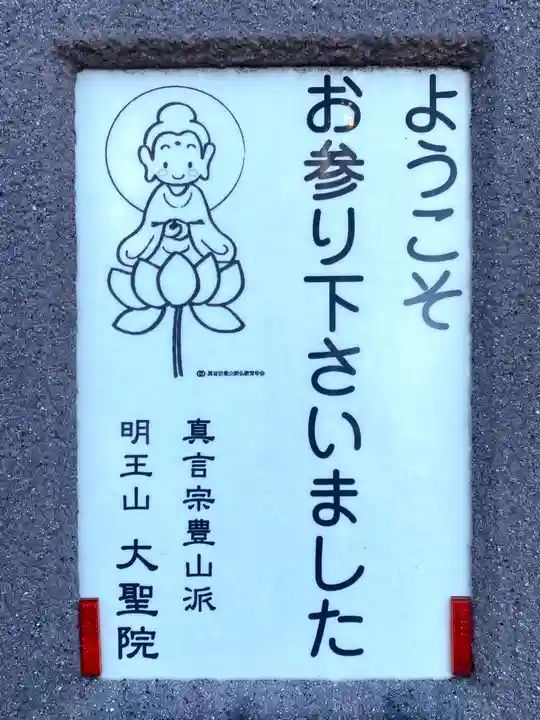 ようこそ
お参り下さいました
真言宗豊山派
明王山 大聖院
真言宗豊山派仏教青年会